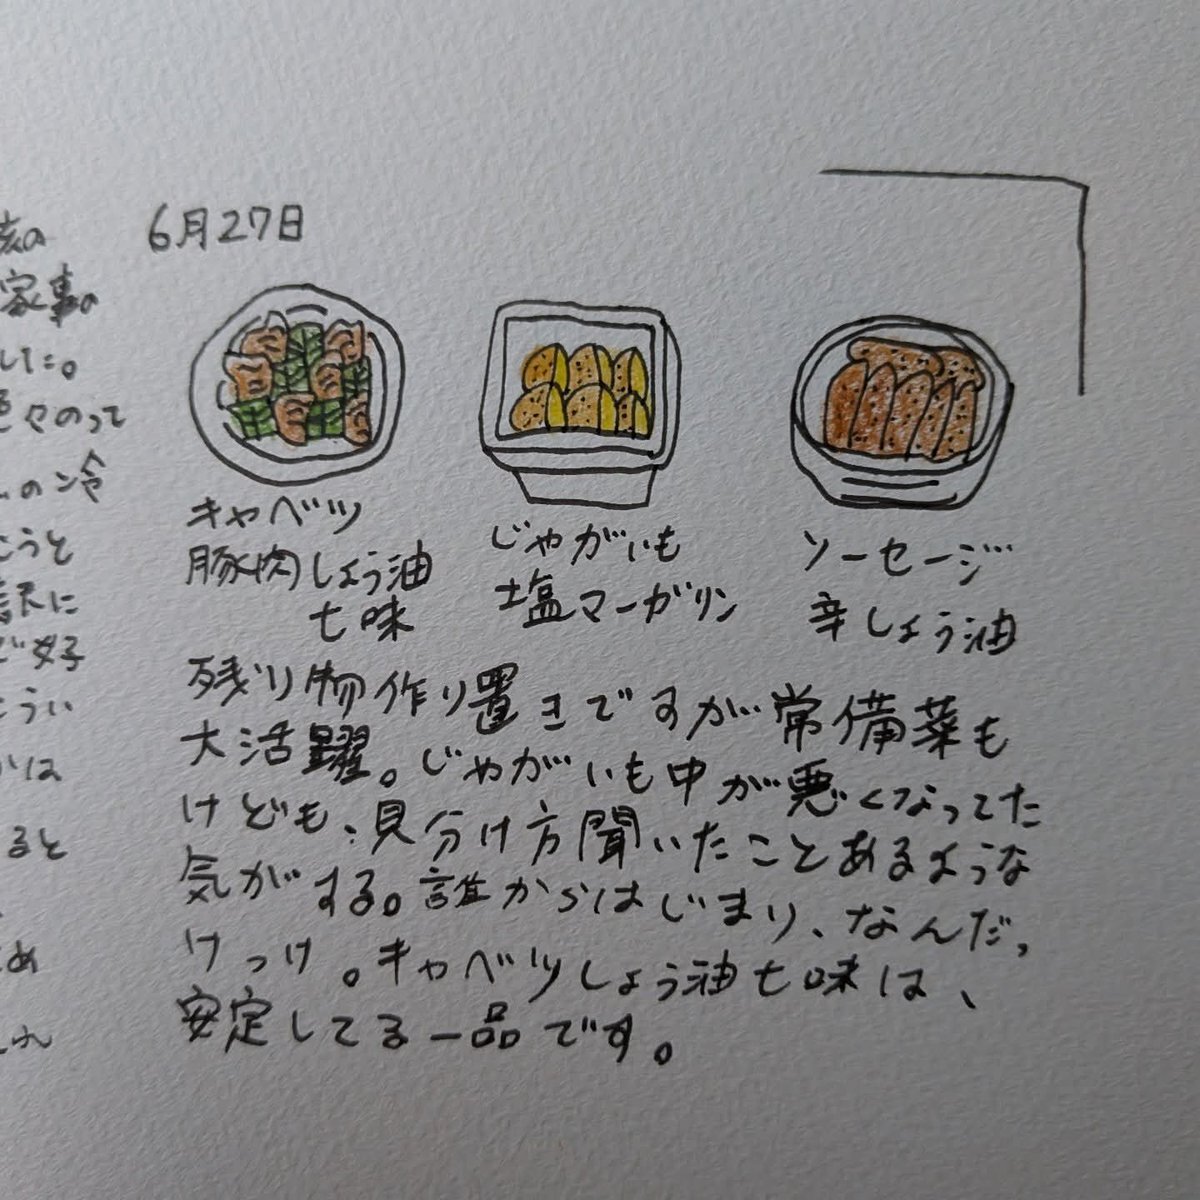 6月27日
キャベツ
豚肉しょう油
七味
じゃがいも
塩マーガリン
ソーセージ
辛しょう油
残り物作り置きですが常備菜も
大活躍。じゃがいも中が悪くなってた
けども、見分け方聞いたことあるような
気がする。誰からはじまり、なんだっ
けっけ。キャベツしょう油七味は、
安定してる一品です。
家事の
した。
々のって
の冷
こうと
訳に
で好
こうい
かは
ると